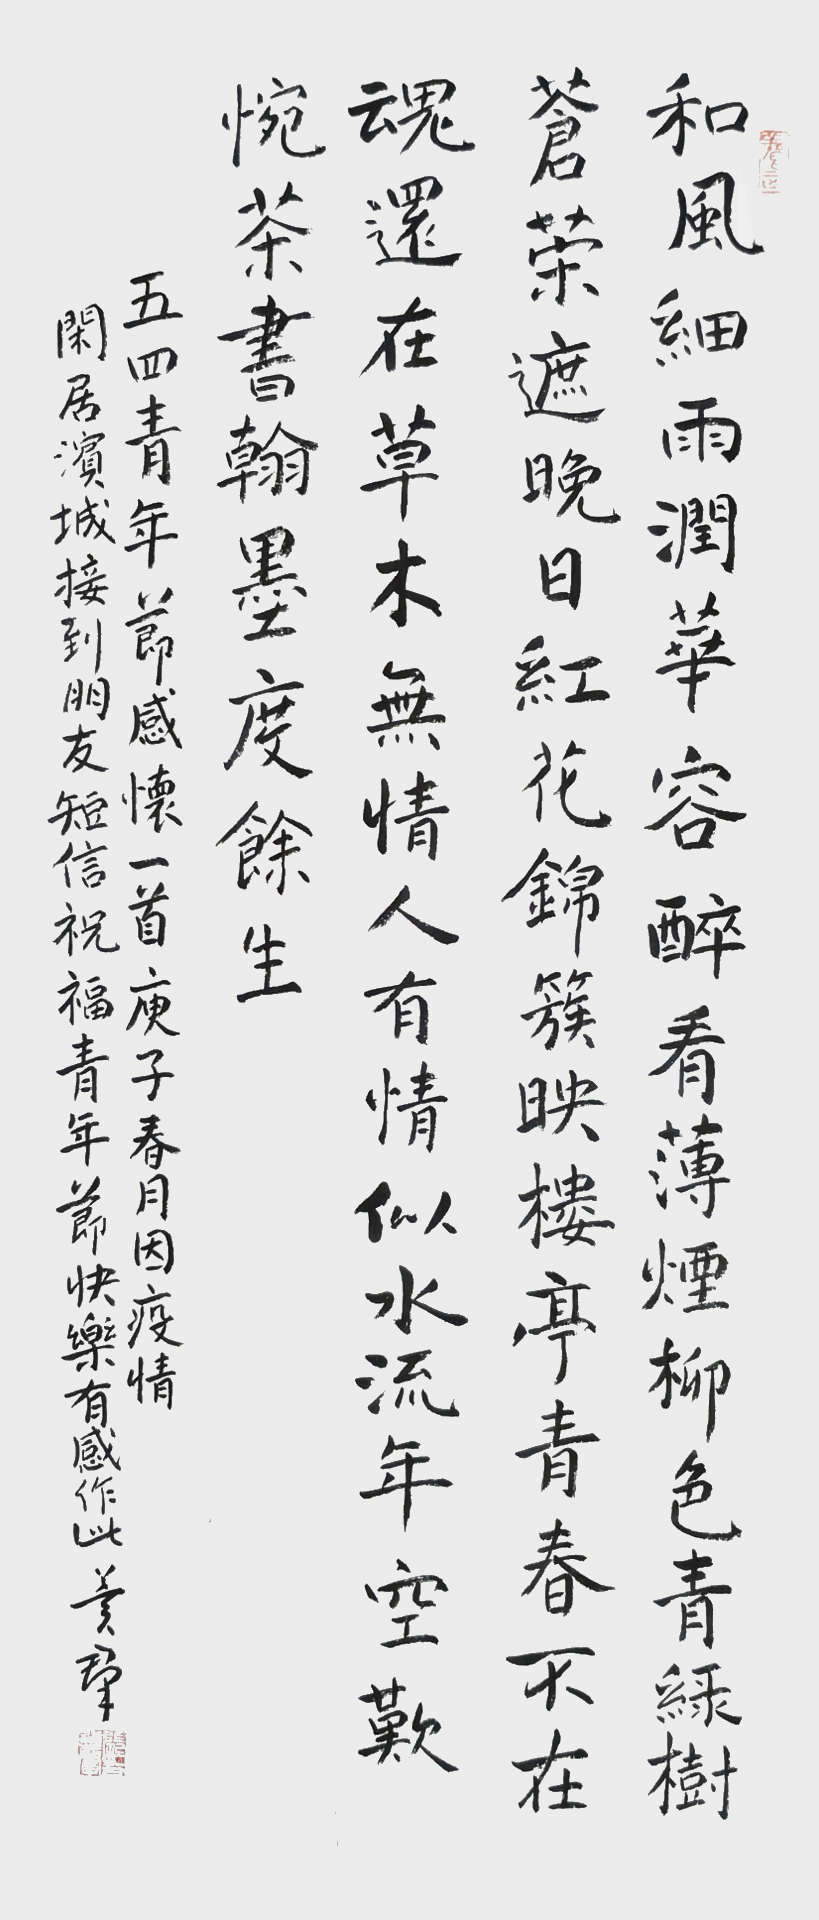 和風細雨潤華容醉看薄煙柳色青綠樹
蒼榮遮晚日紅花錦簇映樓亭青春不在
魂還在草木無情人有情似水流年空歎
惋茶書翰墨度餘生
五四青年節感懷一首庚子春月因疫情
閑居濱城接到朋友短信祝福青年節快樂有感作此